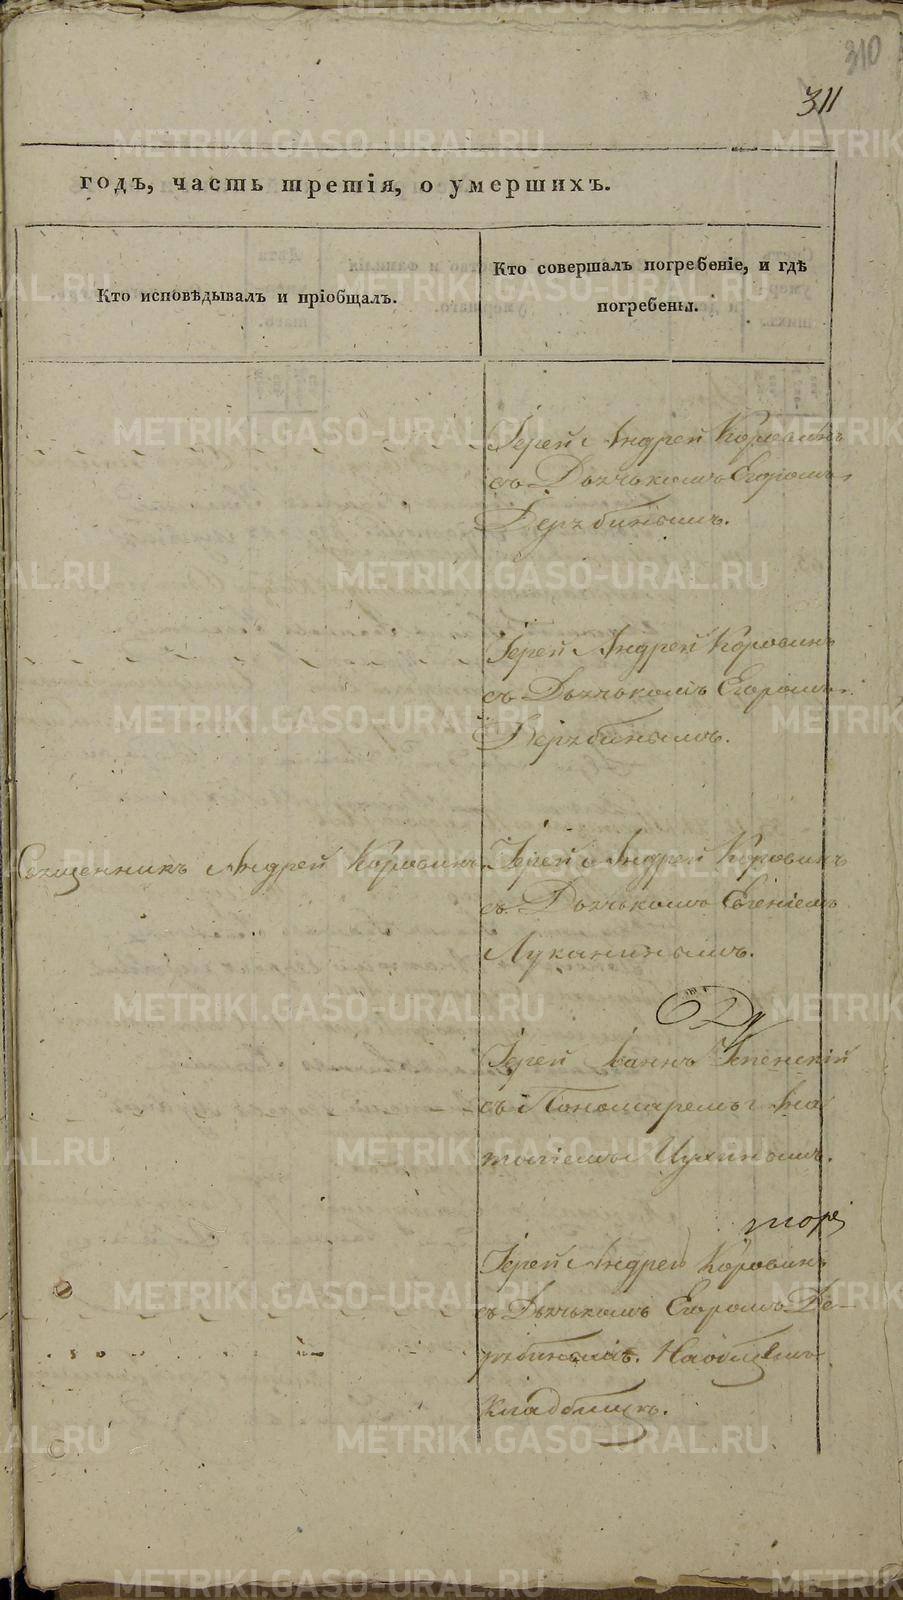 310
311
годъ, часть третія, о умершихъ.
Кто исповѣдывалъ и пріобщалъ.
Кто совершалъ погребеніе, и гдѣ
погребены.
Іерей Андрей Коровинъ
съ Дьячькомъ Егоромъ
Дерябинымъ.
Іерей Андрей Коровинъ
съ Дьячькомъ Егоромъ
Дерябинымъ.
Священникъ Андрей Коровинъ
Іерей Андрей Коровинъ
съ Дьячькомъ Евгеніемъ
Луканинымъ.
Іерей Іоаннъ Успенскій
съ Пономаремъ
Іерей Андрей Коровинъ
съ Дьячькомъ Егоромъ Де-
рябинымъ. На общемъ
кладбищѣ.
METRIKI.GASO-URAL.RU